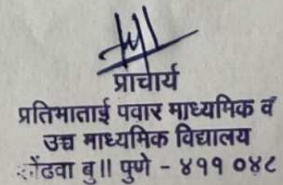 प्राचार्य
प्रतिमाताई पवार माध्यमिक व
उच्च माध्यमिक विद्यालय
बु॥ पुणे - ४११ ०४८